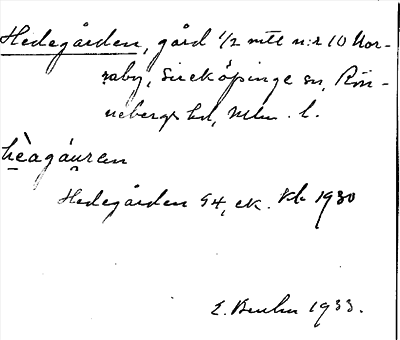 Hedegården, gård 1/2 mtl n:r 10 Nor-
raby, Sireköpinge sn, Rön-
nebergs hd, Mlm. l.
hèagáuren
Hedegården G4, ek. Kb 1930
E. 1933.